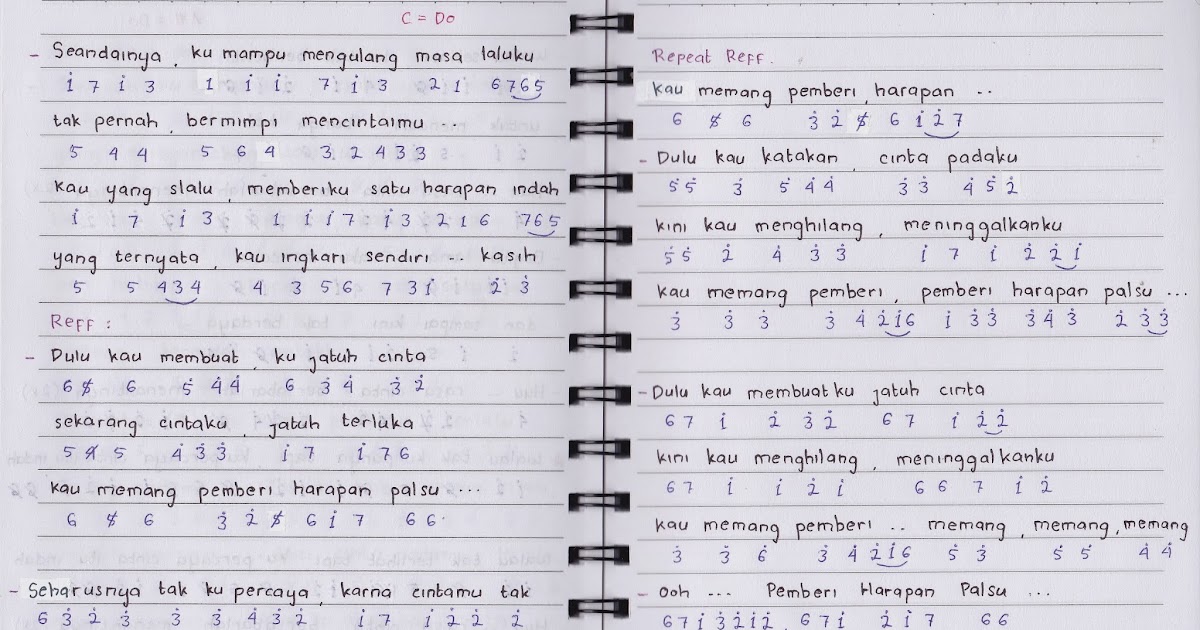 C = Do
- Seandainya, ku mampu mengulang masa laluku
1̇ 7 1̇ 3 1 1̇ 1̇ 7 1̇ 3 2 1 6765
tak pernah, bermimpi mencintaimu ...
5 4 4 5 6 4 3 2 4 3 3
kau yang slalu, memberiku satu harapan indah
1̇ 7 1̇ 3 1 1 1̇ 7 1̇ 3 2 1 6 765
yang ternyata, kau ingkari sendiri .. kasih
5 5 434 4 3 5 6 7 3 1̇ 2̇ 3̇
Reff :
- Dulu kau membuat, ku jatuh cinta
6 5̸ 6 5̇ 4̇ 4̇ 6 3̇ 4̇ 3̇ 2̇
sekarang cintaku, jatuh terluka
5 4̸ 5 4̇ 3̇ 3̇ 1̇ 7 1̇ 7 6
kau memang pemberi harapan palsu ...
6 5̸ 6 3̇ 2̇ 5̸ 6 1̇ 7 6 6
- Seharusnya tak ku percaya, karna cintamu tak
6 3̇ 2̇ 3̇ 3̇ 3̇ 4̇ 3̇ 2̇ 1̇ 7 1̇ 2̇ 2̇ 2̇
Repeat Reff.
kau memang pemberi, harapan ..
6 5̸ 6 3̇ 2̇ 5̸ 6 1̇ 2̇ 7
- Dulu kau katakan, cinta padaku
5̇ 5̇ 3̇ 5̇ 4̇ 4̇ 3̇ 3̇ 4̇ 5̇ 2̇
kini kau menghilang, meninggalkanku
5̇ 5̇ 2̇ 4̇ 3̇ 3̇ 1̇ 7 1̇ 2̇ 2̇ 1̇
kau memang pemberi, pemberi harapan palsu ...
3̇ 3̇ 3̇ 3̇ 4̇ 2̇1̇6 1̇ 3̇ 3̇ 3̇ 4̇ 3̇ 2̇ 3̇ 3̇
- Dulu kau membuat ku jatuh cinta
6 7 1̇ 2̇ 3̇ 2̇ 6 7 1̇ 2̇ 2̇
kini kau menghilang, meninggalkanku
6 7 1̇ 1̇ 2̇ 1̇ 6 6 7 1̇ 2̇
kau memang pemberi .. memang, memang, memang
3̇ 3̇ 6 3̇ 4̇ 2̇1̇6 5̇ 3̇ 5̇ 5̇ 4̇ 4̇
- Ooh ... Pemberi Harapan Palsu ...
6 7 1̇ 3̇ 2̇ 1̇ 2̇. 6 7 1̇ 2̇ 1̇ 7 6 6